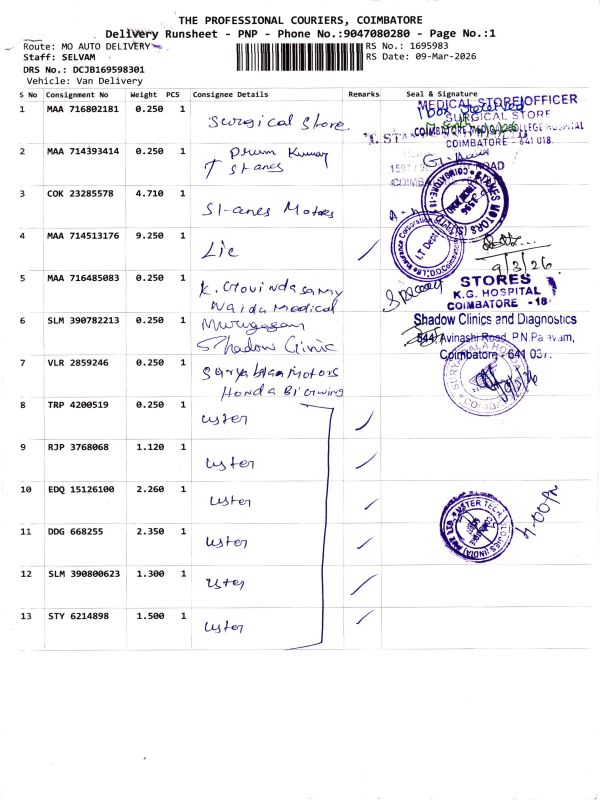 THE PROFESSIONAL COURIERS, COIMBATORE
Delivery Runsheet - PNP - Phone No.:9047080280 - Page No.:1
Route: MO AUTO DELIVERY
RS No.: 1695983
Staff: SELVAM
RS Date: 09-Mar-2026
DRS No.: DCJB169598301
Vehicle: Van Delivery
S No Consignment No Weight PCS Consignee Details Remarks Seal & Signature
1 MAA 716802181 0.250 1 Surgical Store
MEDICAL STORE OFFICER
SURGICAL STORE
COIMBATORE MEDICAL COLLEGE HOSPITAL
COIMBATORE - 641 018.
2 MAA 714393414 0.250 1 Prem Kumar
T Stanes
ROAD
3 COK 23285578 4.710 1 Stanes Motors
STANES MOTORS
4 MAA 714513176 9.250 1 Lic
I.T Dept
9/3/26.
5 MAA 716485083 0.250 1 K. Govindasamy
Naidu Medical
STORES
K.G. HOSPITAL
COIMBATORE - 18
6 SLM 390782213 0.250 1 Murugesan
Shadow Clinic
Shadow Clinics and Diagnostics
544, Avinashi Road, P.N.Palayam,
Coimbatore - 641 037.
7 VLR 2859246 0.250 1 Suryabala Motors
Honda
8 TRP 4200519 0.250 1 Uster
9 RJP 3768068 1.120 1 Uster
10 EDQ 15126100 2.260 1 Uster
4-00 PM
11 DDG 668255 2.350 1 Uster
12 SLM 390800623 1.300 1 Uster
13 STY 6214898 1.500 1 Uster